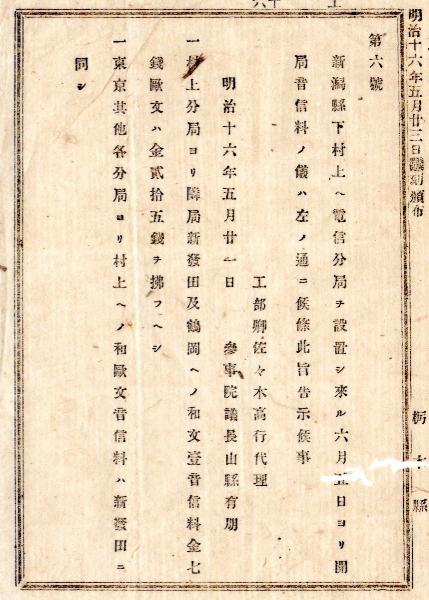 明治十六年五月廿三日飜刻頒布
栃木縣
第六號
新潟縣下村上ヘ電信分局ヲ設置シ來ル六月五日ヨリ開
局音信料ノ儀ハ左ノ通ニ候條此旨告示候事
工部卿佐々木高行代理
明治十六年五月廿一日　參事院議長山縣有朋
一村上分局ヨリ隣局新發田及鶴岡ヘノ和文壹音信料金七
錢歐文ハ金貳拾五錢ヲ拂フヘシ
一東京其他各分局ヨリ村上ヘノ和歐文音信料ハ新發田ニ
同シ